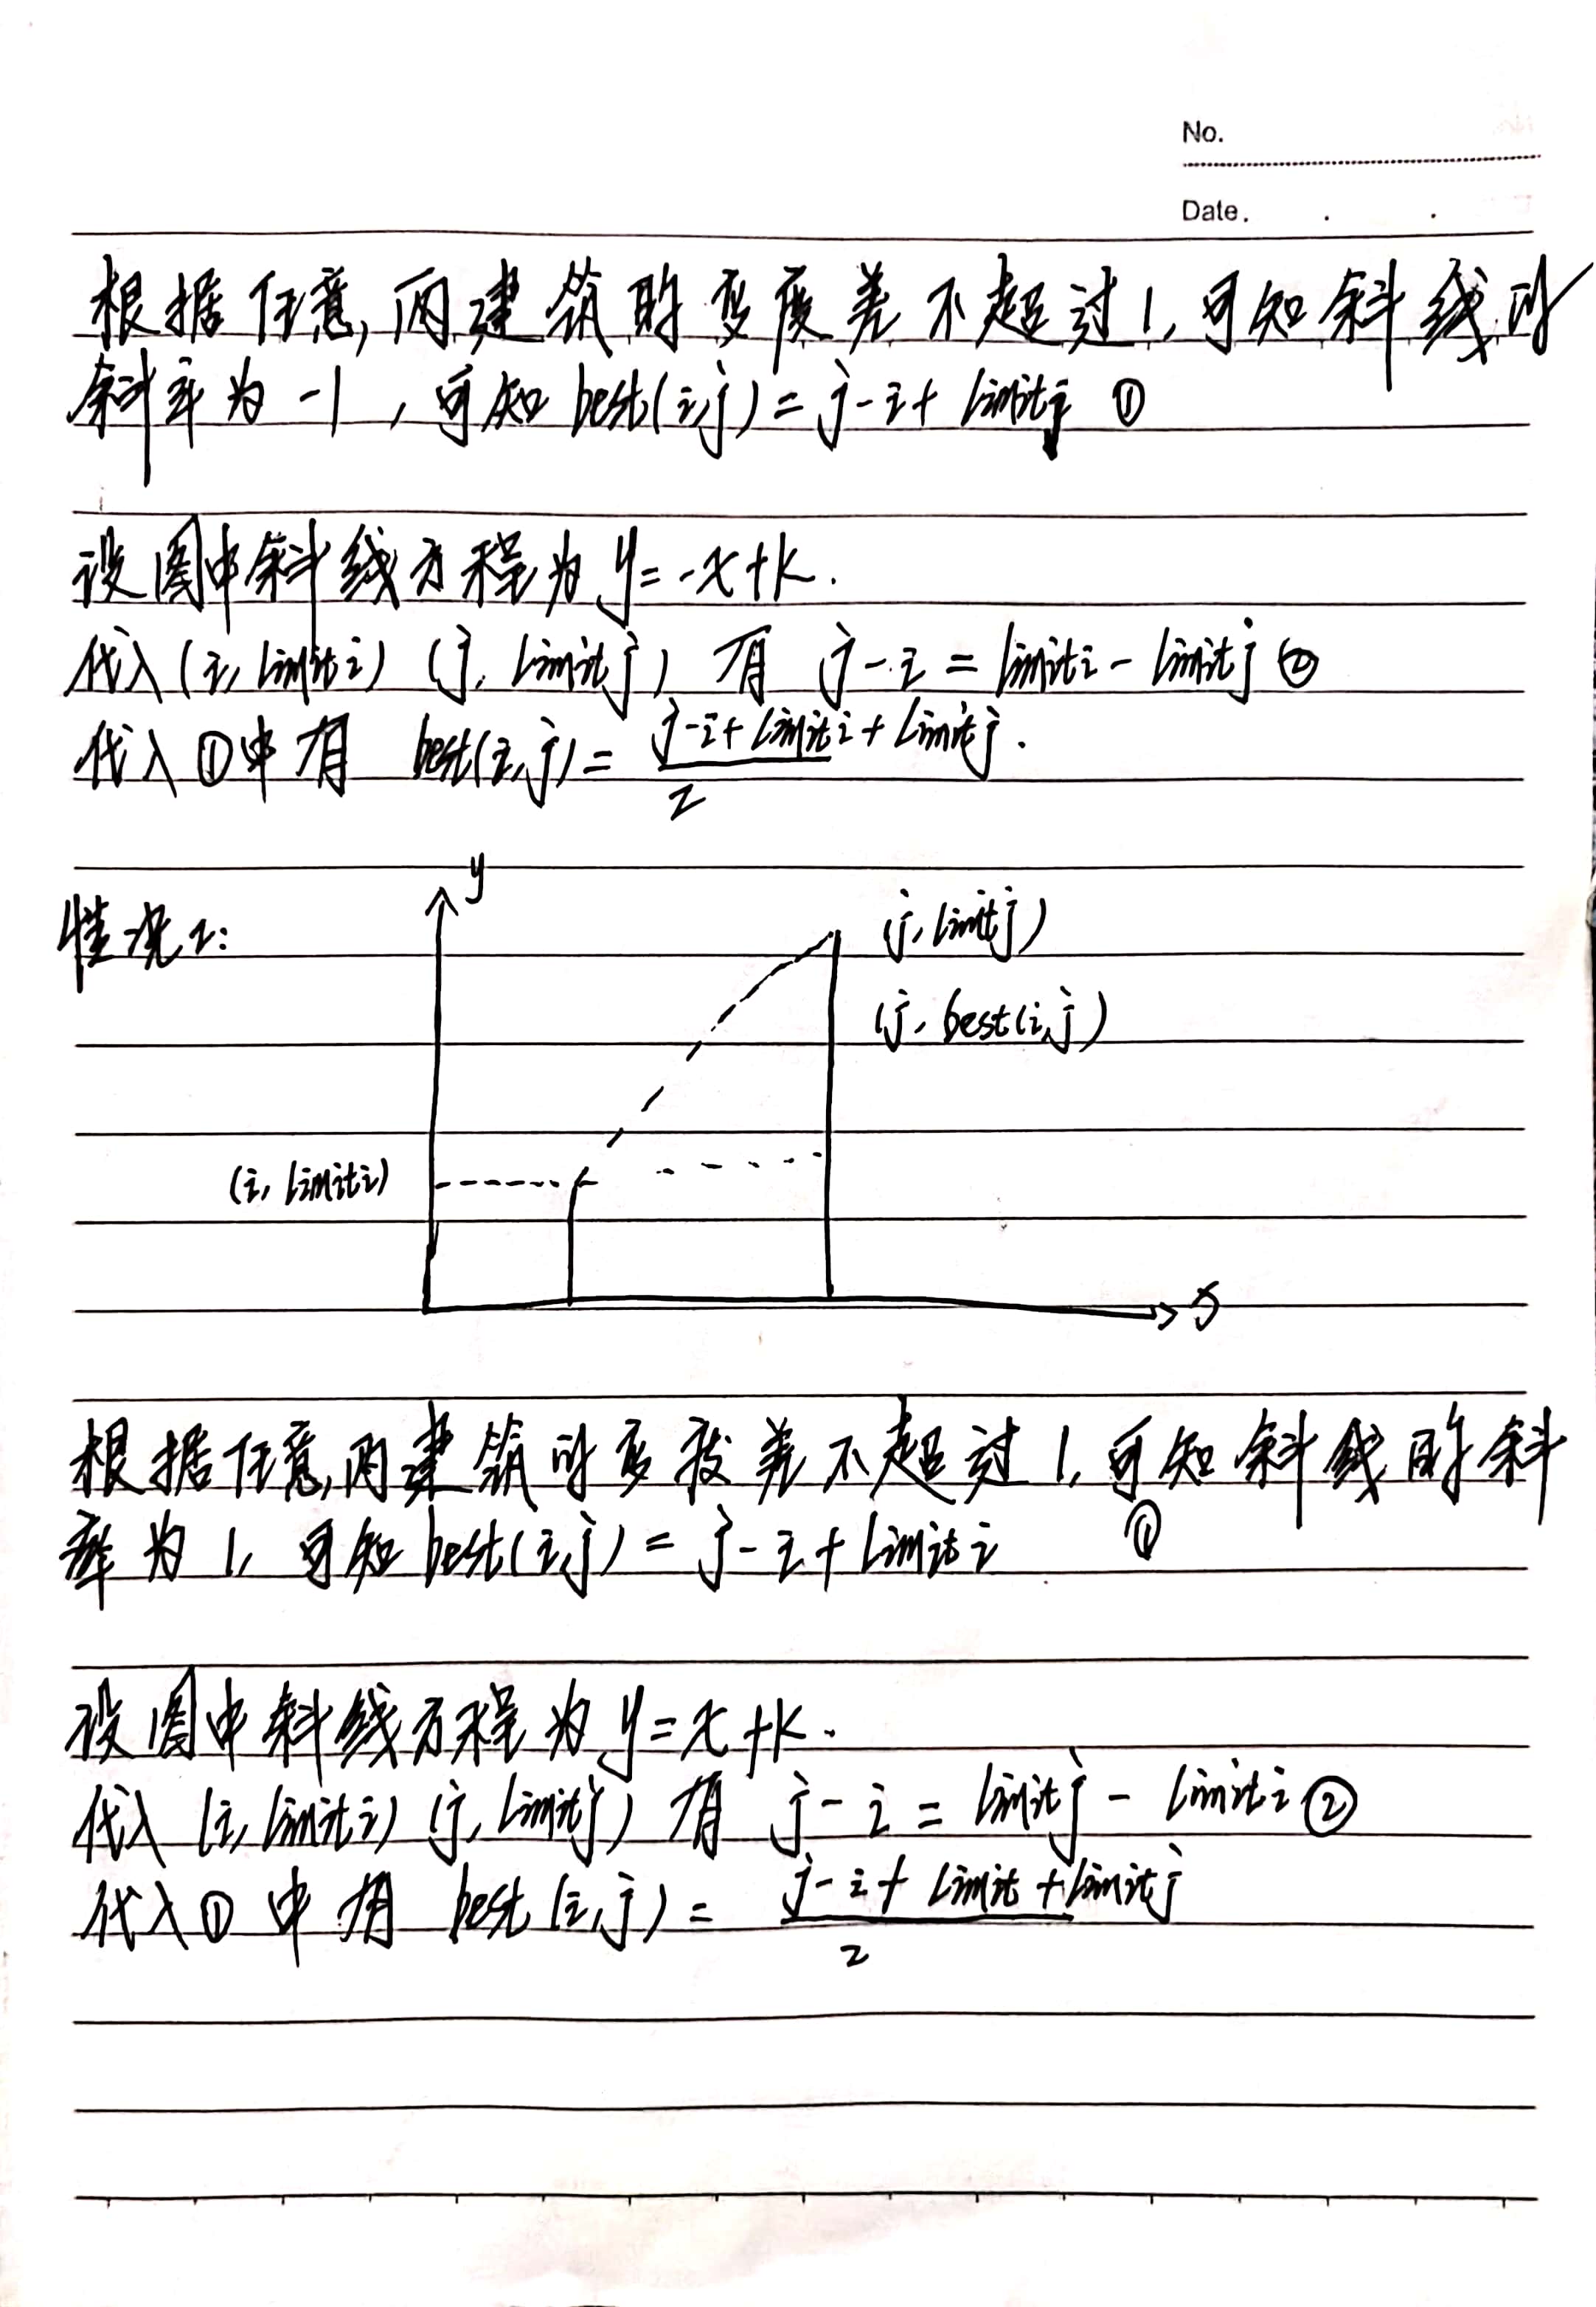 No.
Date.
根据任意,两建筑的高度差不超过1,可知斜线的
斜率为-1,可知best(i,j)=j-i+limitj ①
设图中斜线方程为y=-x+k.
代入(i,limiti)(j,limitj)有 j-i=limiti-limitj②
代入①中有 best(i,j)=\frac{j-i+limiti+limitj}{2}.
y
情况2:
(j,limitj)
(j,best(i,j)
(i,limiti)
x
根据任意,两建筑的高度差不超过1,可知斜线的斜
率为1,可知best(i,j)=j-i+limiti ①
设图中斜线方程为y=x+k.
代入(i,limiti)(j,limitj)有 j-i=limitj-limiti②
代入①中有 best(i,j)=\frac{j-i+limit+limitj}{2}